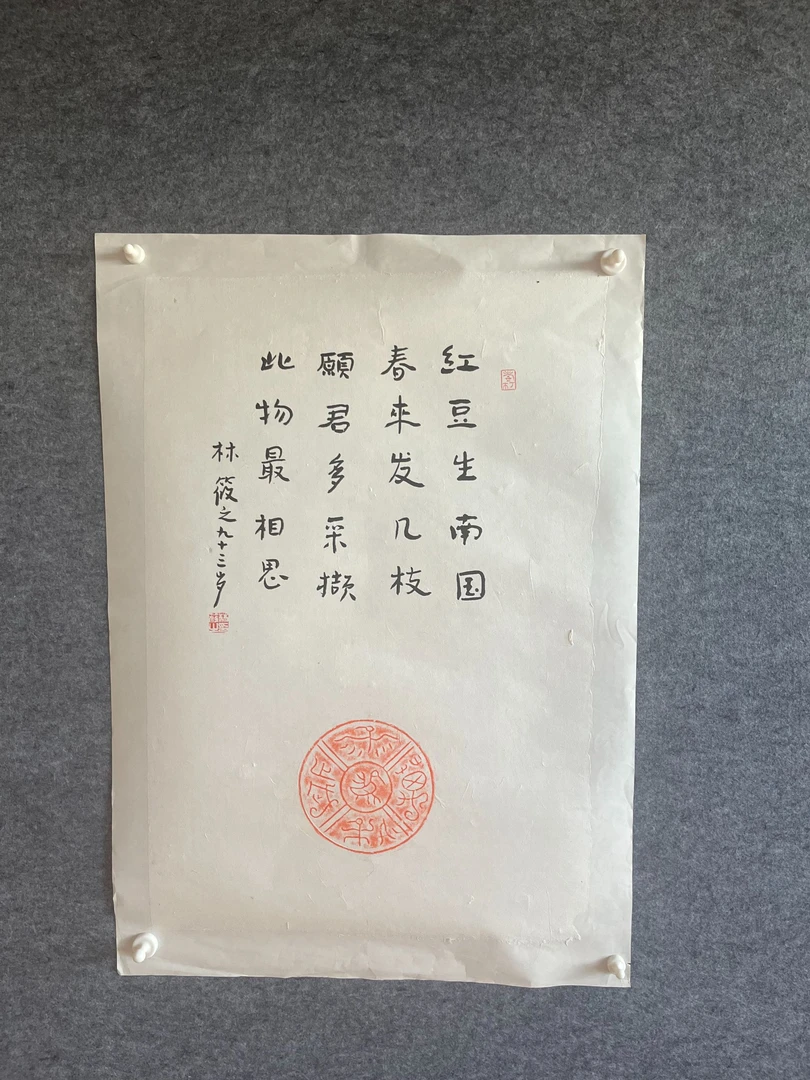 红豆生南国
春来发几枝
願君多采撷
此物最相思
林筱之九十三岁